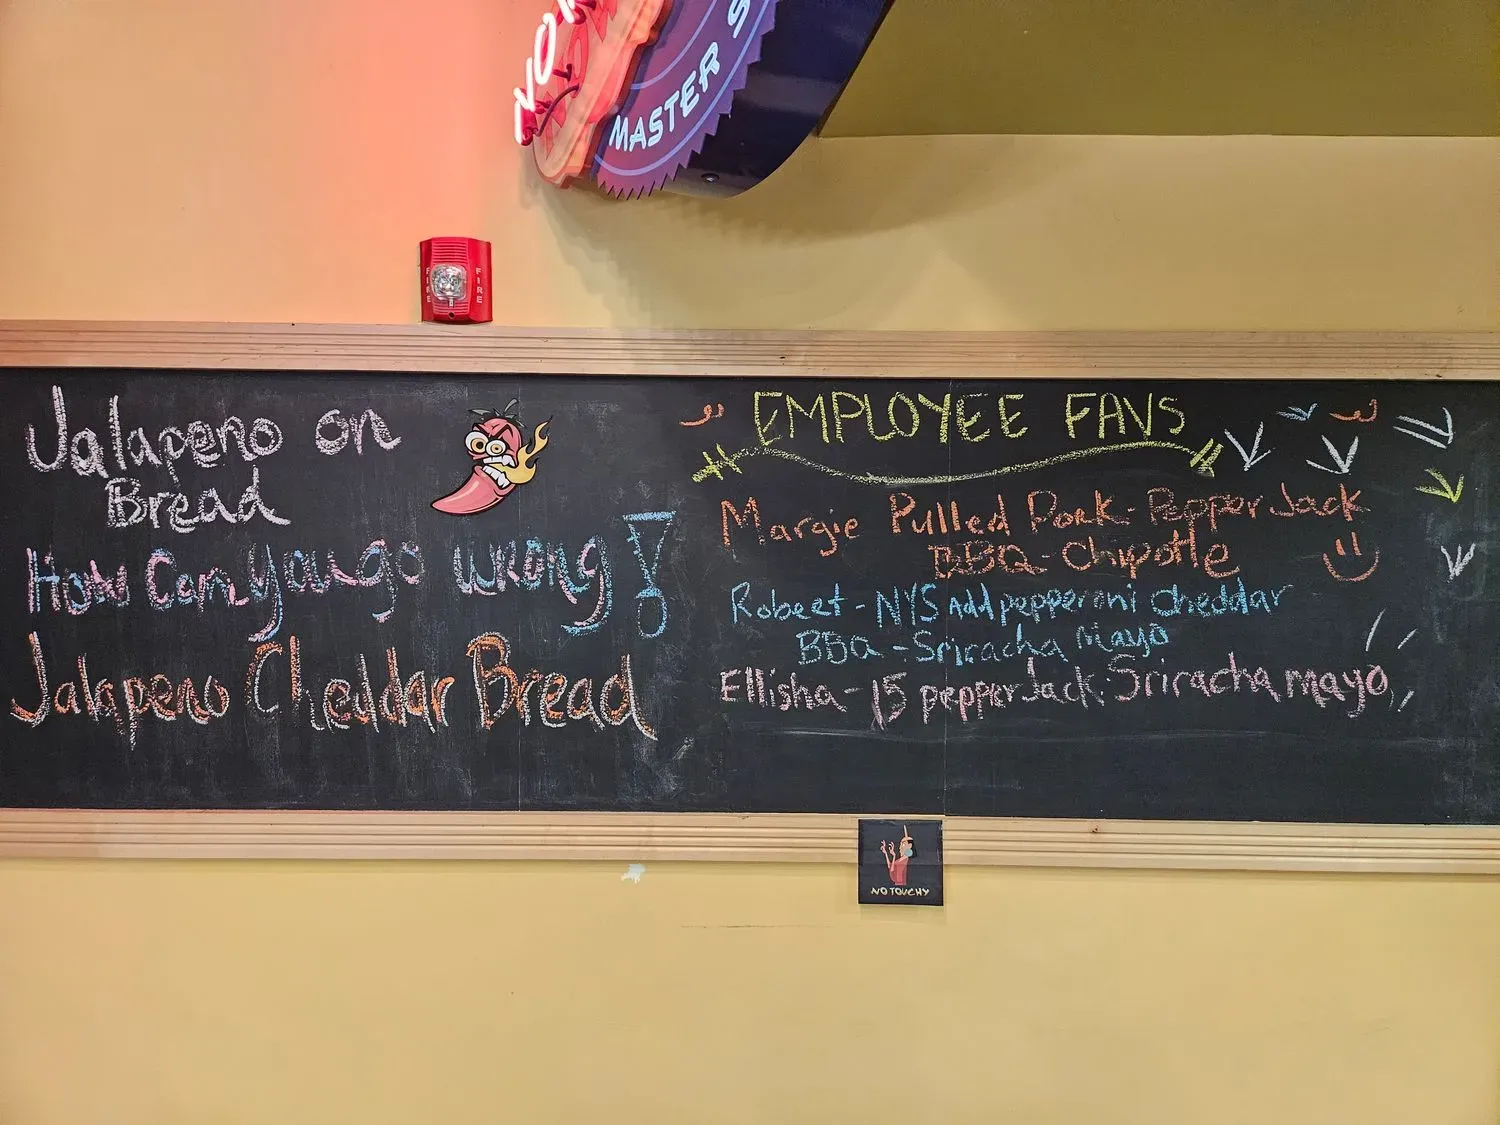 MASTER S
FIRE
FIRE
Jalapeno on
Bread
How Can You go wrong!
Jalapeno Cheddar Bread
EMPLOYEE FAVS
Margie Pulled Pork - Pepper Jack
BBQ - Chipotle
Robert - NYS Add pepperoni cheddar
BBQ - Sriracha Mayo
Ellisha - 15 pepper Jack. Sriracha mayo
NO TOUCHY